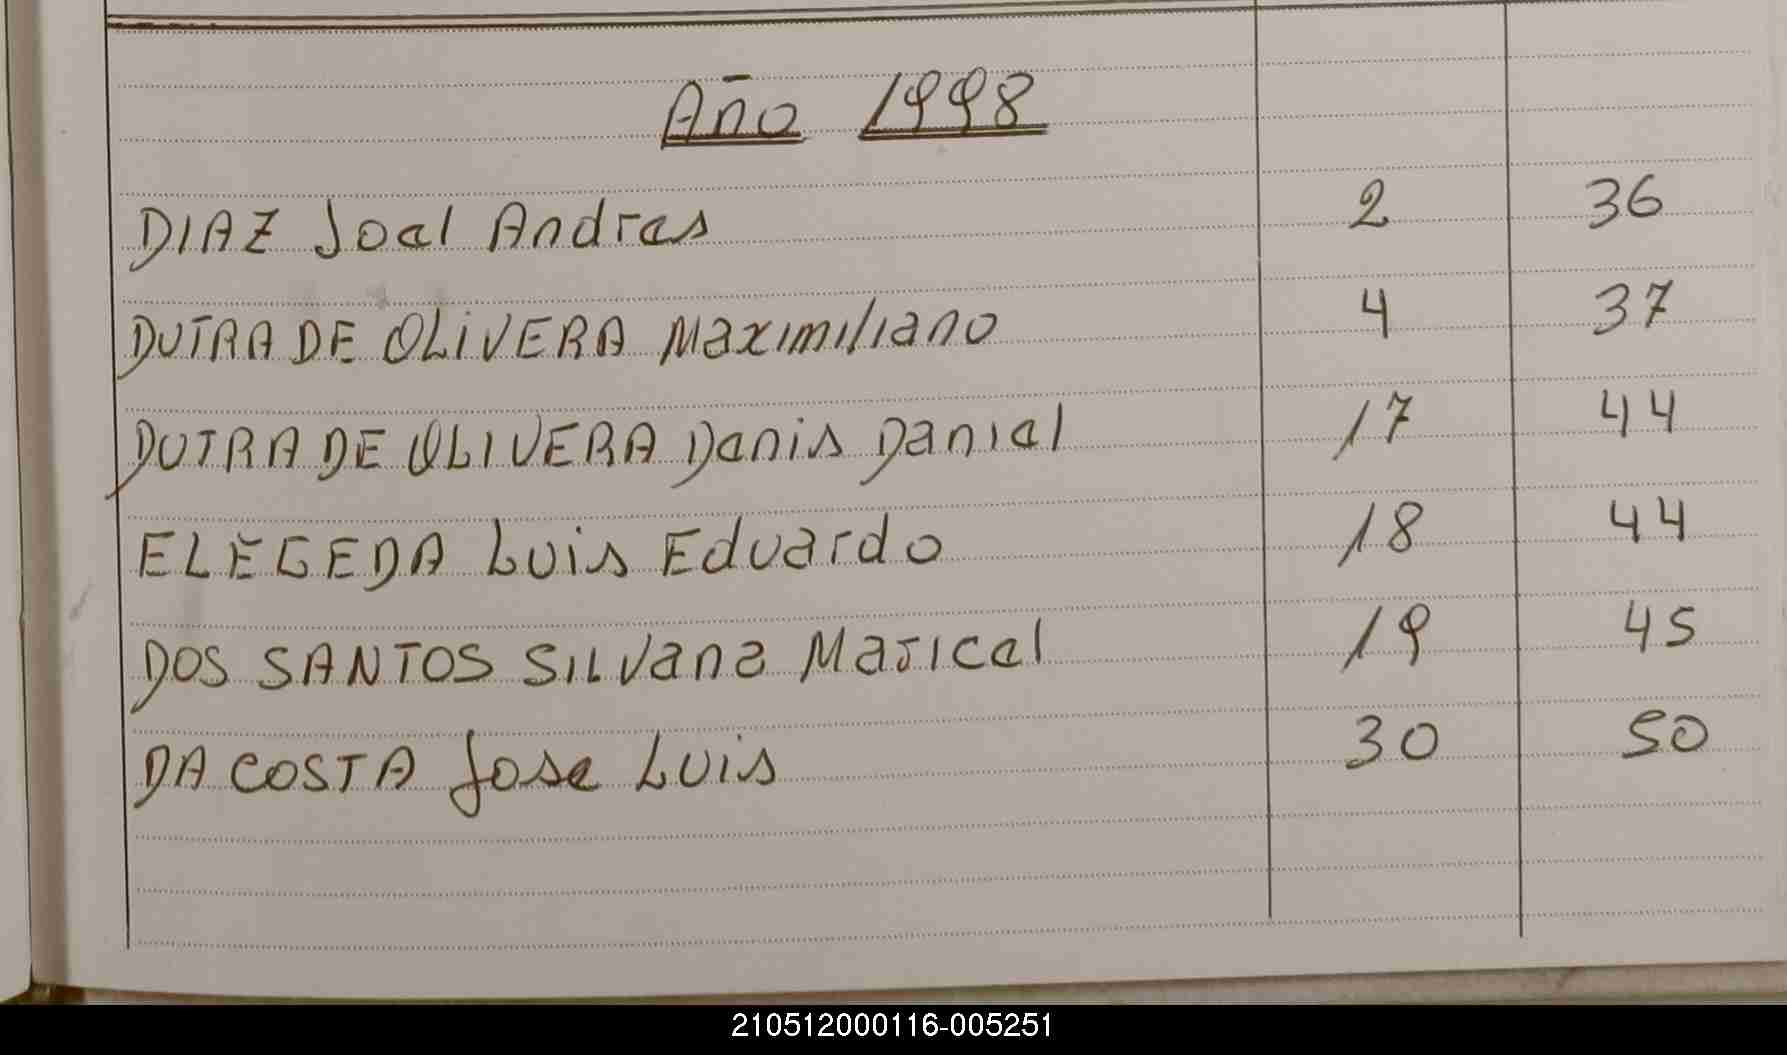 Año 1998
DIAZ Joel Andres 2 36
DUTRA DE OLIVERA Maximiliano 4 37
DUTRA DE OLIVERA Denis Daniel 17 44
ELEGEDA Luis Eduardo 18 44
DOS SANTOS SILVana Maricel 19 45
DA COSTA Jose Luis 30 50
210512000116-005251